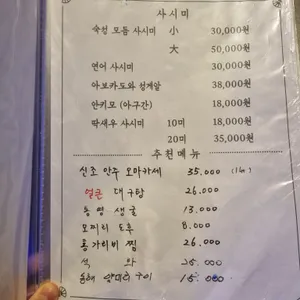 사시미
숙성 모듬 사시미 小 30,000원
大 50,000원
연어 사시미 30,000원
아보카도와 성게알 38,000원
안키모 (아구간) 18,000원
딱새우 사시미 10미 18,000원
20미 35,000원
추천메뉴
신조 안주 오마카세 35.000 (1인)
얼큰 대구탕 26.000
통영 생굴 13.000
모찌리 도후 8.000
홍가리비 찜 26.000
석화 25.000
양미리 구이 15.000